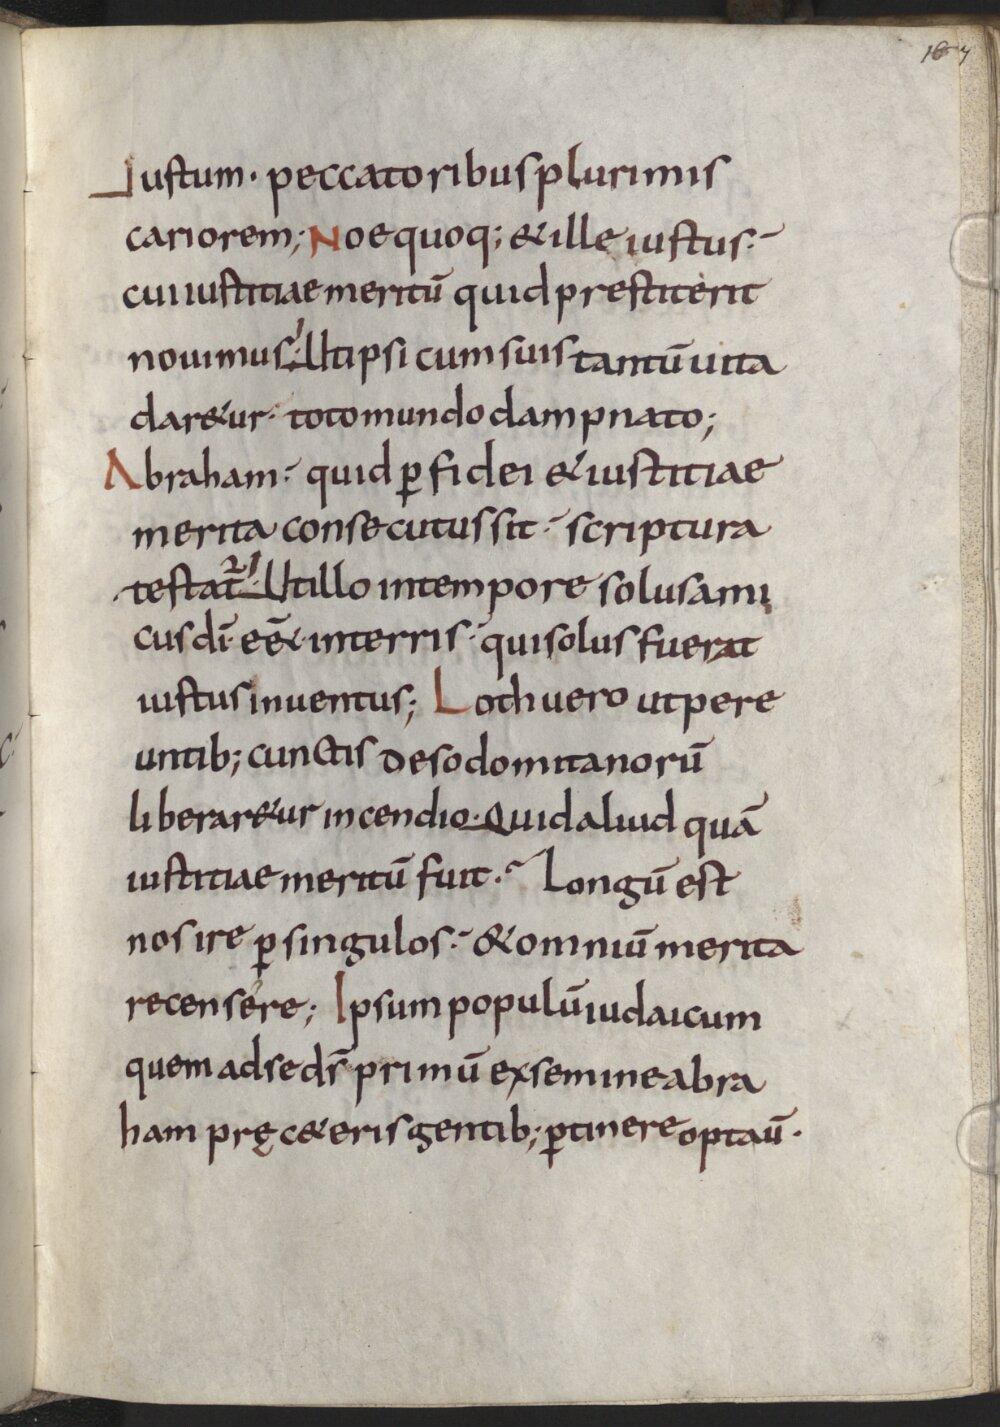 167
Iustum · peccatoribus plurimis
cariorem; Noe quoq; & ille iustus·
cui iustitiae meritū quid prestiterit
nouimus· Ut ipsi cum suis tantū uita
dar&ur· toto mundo dampnato;
Abraham· quid p̱ fidei & iustitiae
merita consecutus sit· scriptura
testat̃· Ut illo in tempore solus ami
cus dī· eē&· in terris· qui solus fuerat
iustus inuentus; Loth uero ut pere
untib; cunctis de sodomitanorū
liberar&ur incendio· Quid aliud quā
iustitiae meritū fuit· Longū est
nos ire p̱ singulos· & omniū merita
recensere; Ipsum populū iudaicum
quem ad se ds̄ primū ex semine abra
ham pręc&eris gentib; p̱tinere optaū·